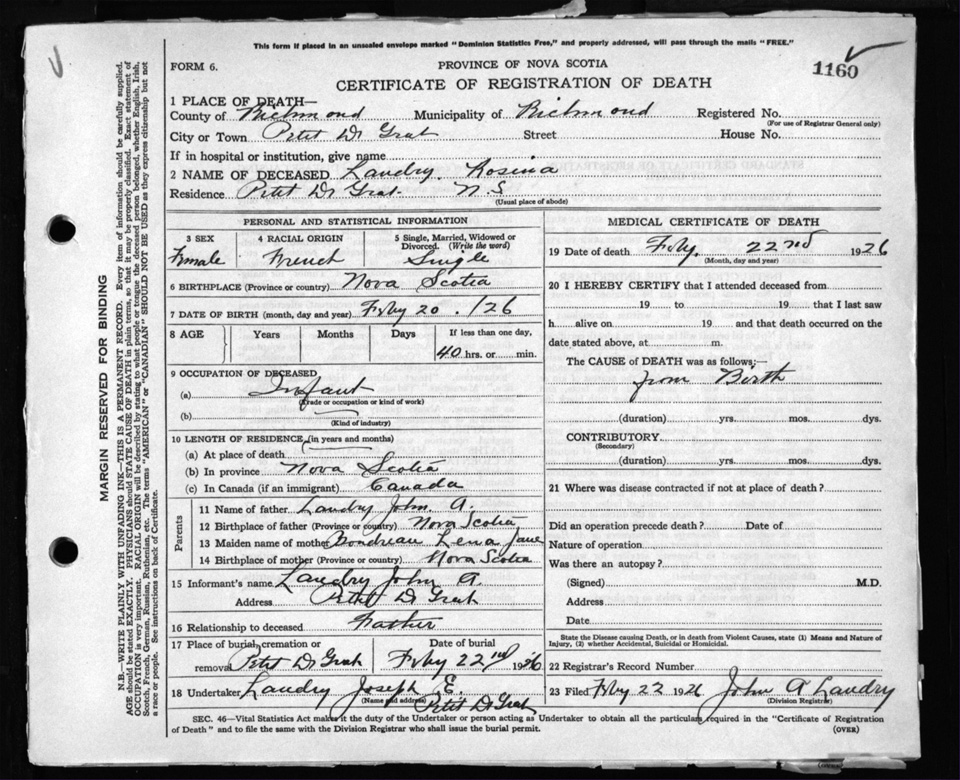 This form if placed in an unsealed envelope marked "Dominion Statistics Free," and properly addressed, will pass through the mails "FREE."
FORM 6.
PROVINCE OF NOVA SCOTIA
1160
CERTIFICATE OF REGISTRATION OF DEATH
1 PLACE OF DEATH—
County of Richmond Municipality of Richmond Registered No.
(For use of Registrar General only)
City or Town Petit D Grat Street House No.
If in hospital or institution, give name
2 NAME OF DECEASED Landry Rosina
Residence Petit D Grat N.S
(Usual place of abode)
PERSONAL AND STATISTICAL INFORMATION
3 SEX 4 RACIAL ORIGIN 5 Single, Married, Widowed or Divorced. (Write the word)
Female French Single
6 BIRTHPLACE (Province or country) Nova Scotia
7 DATE OF BIRTH (month, day and year) Feby 20. /26
8 AGE Years Months Days If less than one day,
40 hrs. or min.
9 OCCUPATION OF DECEASED
(a) Infant
(Trade or occupation or kind of work)
(b)
(Kind of industry)
10 LENGTH OF RESIDENCE (in years and months)
(a) At place of death
(b) In province Nova Scotia
(c) In Canada (if an immigrant) Canada
Parents
11 Name of father Landry John A.
12 Birthplace of father (Province or country) Nova Scotia
13 Maiden name of mother Boudreau Lena Jane
14 Birthplace of mother (Province or country) Nova Scotia
15 Informant's name Landry John A.
Address Petit D Grat
16 Relationship to deceased Father
17 Place of burial, cremation or removal Petit D Grat Date of burial Feby 22nd 1926
18 Undertaker Landry Joseph E.
(Name and address) Petit D Grat
MEDICAL CERTIFICATE OF DEATH
19 Date of death Feby. 22nd 1926
(Month, day and year)
20 I HEREBY CERTIFY that I attended deceased from
19 to 19 that I last saw
h alive on 19 and that death occurred on the
date stated above, at m.
The CAUSE of DEATH was as follows;—
from Birth
(duration) yrs. mos. dys.
CONTRIBUTORY
(Secondary)
(duration) yrs. mos. dys.
21 Where was disease contracted if not at place of death?
Did an operation precede death? Date of
Nature of operation
Was there an autopsy?
(Signed) M.D.
Address
Date
State the Disease causing Death, or in death from Violent Causes, state (1) Means and Nature of
Injury, (2) whether Accidental, Suicidal or Homicidal.
22 Registrar's Record Number
23 Filed Feby 22 1926 John A Landry
(Division Registrar)
SEC. 46—Vital Statistics Act makes it the duty of the Undertaker or person acting as Undertaker to obtain all the particulars required in the "Certificate of Registration
of Death" and to file the same with the Division Registrar who shall issue the burial permit.
(OVER)
MARGIN RESERVED FOR BINDING
N.B.—WRITE PLAINLY WITH UNFADING INK—THIS IS A PERMANENT RECORD. Every item of information should be carefully supplied.
AGE should be stated EXACTLY. PHYSICIANS should STATE CAUSE OF DEATH in plain terms, so that it may be properly classified. Exact statement of
OCCUPATION is very important. RACIAL ORIGIN will be described by stating to what people or tongue the deceased person belonged, whether English, Irish,
Scotch, French, German, Russian, Ruthenian, etc. The terms "AMERICAN" or "CANADIAN" SHOULD NOT BE USED as they express citizenship but not
a race or people. See instructions on back of Certificate.